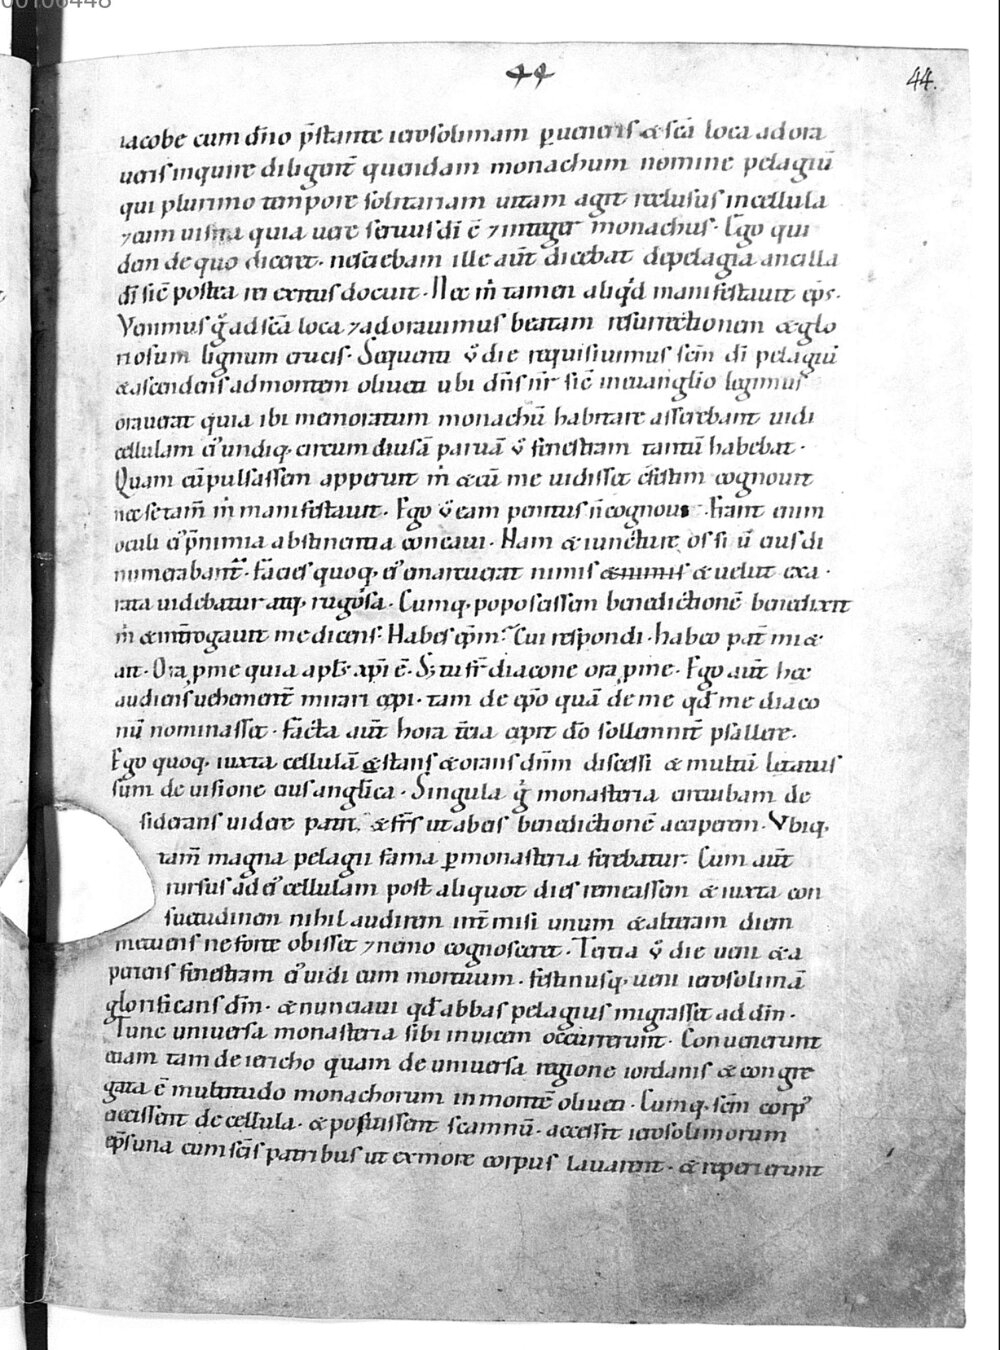 00106448
44
44.
iacobe cum dño p̄stante ierosolimam ꝑueneris & sc̄a loca adora
ueris inquire diligent̄ quendam monachum nomine pelagiū
qui plurimo tempore solitariam uitam agit reclusus in cellula
⁊ eum uisita quia uere seruus dī ē ⁊ integer monachus · Ego qui
dem de quo diceret · nesciebam ille aūt dicebat de pelagia ancilla
dī sic̄ postea rei exitus docuit · Nec m̄ tamen aliqd̄ manifestauit ep̄s ·
Venimus g̊ ad sc̄a loca ⁊ adorauimus beatam resurrectionem & glo
riosum lignum crucis · Sequenti v̊ die requisiuimus sc̄m dī pelagiū
& ascendens ad montem oliueti ubi dn̄s nr̄ sic̄ in euanglīo legimus
orauerat quia ibi memoratum monachū habitare asserebant uidi
cellulam ei᾽ undiq; circum clusā paruā v̊ fenestram tantū habebat ·
Quam cū pulsassem apperuit m̄ & cū me uidisset cōfestim cognouit
nec se tam̄ m̄ manifestauit · Ego v̊ eam penitus n̄ cognoui · Erant enim
oculi ei᾽ p̄ nimia abstinentia concaui · Nam & iuncture ossiū eius di
numerabant᷑ · facies quoq; ei᾽ emarcuerat nimis & nimis & uelut exa ·
rata uidebatur atq; rugosa · Cumq; poposcissem benedictionē benedixit
m̄ & int̄rogauit me dicens · Habes ep̄m · Cui respondi · habeo pat̄ mi &
ait · Ora p me quia apl̄s xp̄i ē · S; tu fr̄ diacone ora p me · Ego aūt hec
audiens uehement̄ mirari cepi · tam de ep̄o quā de me qd̄ me diaco
nū nominasset · facta aūt hora t̄cia cepit dō sollemnit̄ psallere ·
Ego quoq; iuxta cellulā stans & orans dn̄m discessi & multū letatus
sum de uisione eius anglīca · Singula g̊ monasteria circuibam de
siderans uidere patr̄ & fr̄s ut ab eis benedictionē acciperem · Vbiq;
tam̄ magna pelagii fama ꝑ monasteria ferebatur · Cum aūt
rursus ad ei᾽ cellulam post aliquot dies remeassem & iuxta con
suetudinem nihil audirem int̄misi unum & alteram diem
metuens ne forte obisset ⁊ nemo cognosceret · Tertia v̊ die ueni & a
periens fenestram ei᾽ uidi eum mortuum · festinusq; ueni ierosolimā
glorificans dn̄m · & nunciaui qd̄ abbas pelagius migrasset ad dn̄m ·
Tunc uniuersa monasteria sibi inuicem occurrerunt · Conuenerunt
etiam tam de iericho quam de uniuersa regione iordanis & congre
gata ē multitudo monachorum in monte oliueti · Cumq; sc̄m corp᾽
eiecissent de cellula · & posuissent scamnū · accessit ierosolimorum
ep̄s una cum sc̄is patribus ut ex more corpus lauarent · & reperierunt